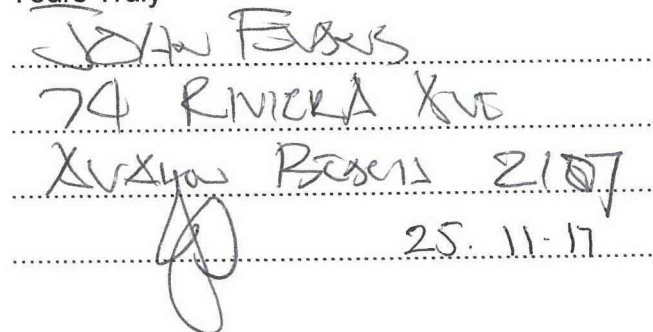 Yours Truly
John
74 Riviera Ave
Avalon Beach 2107
25.11.17